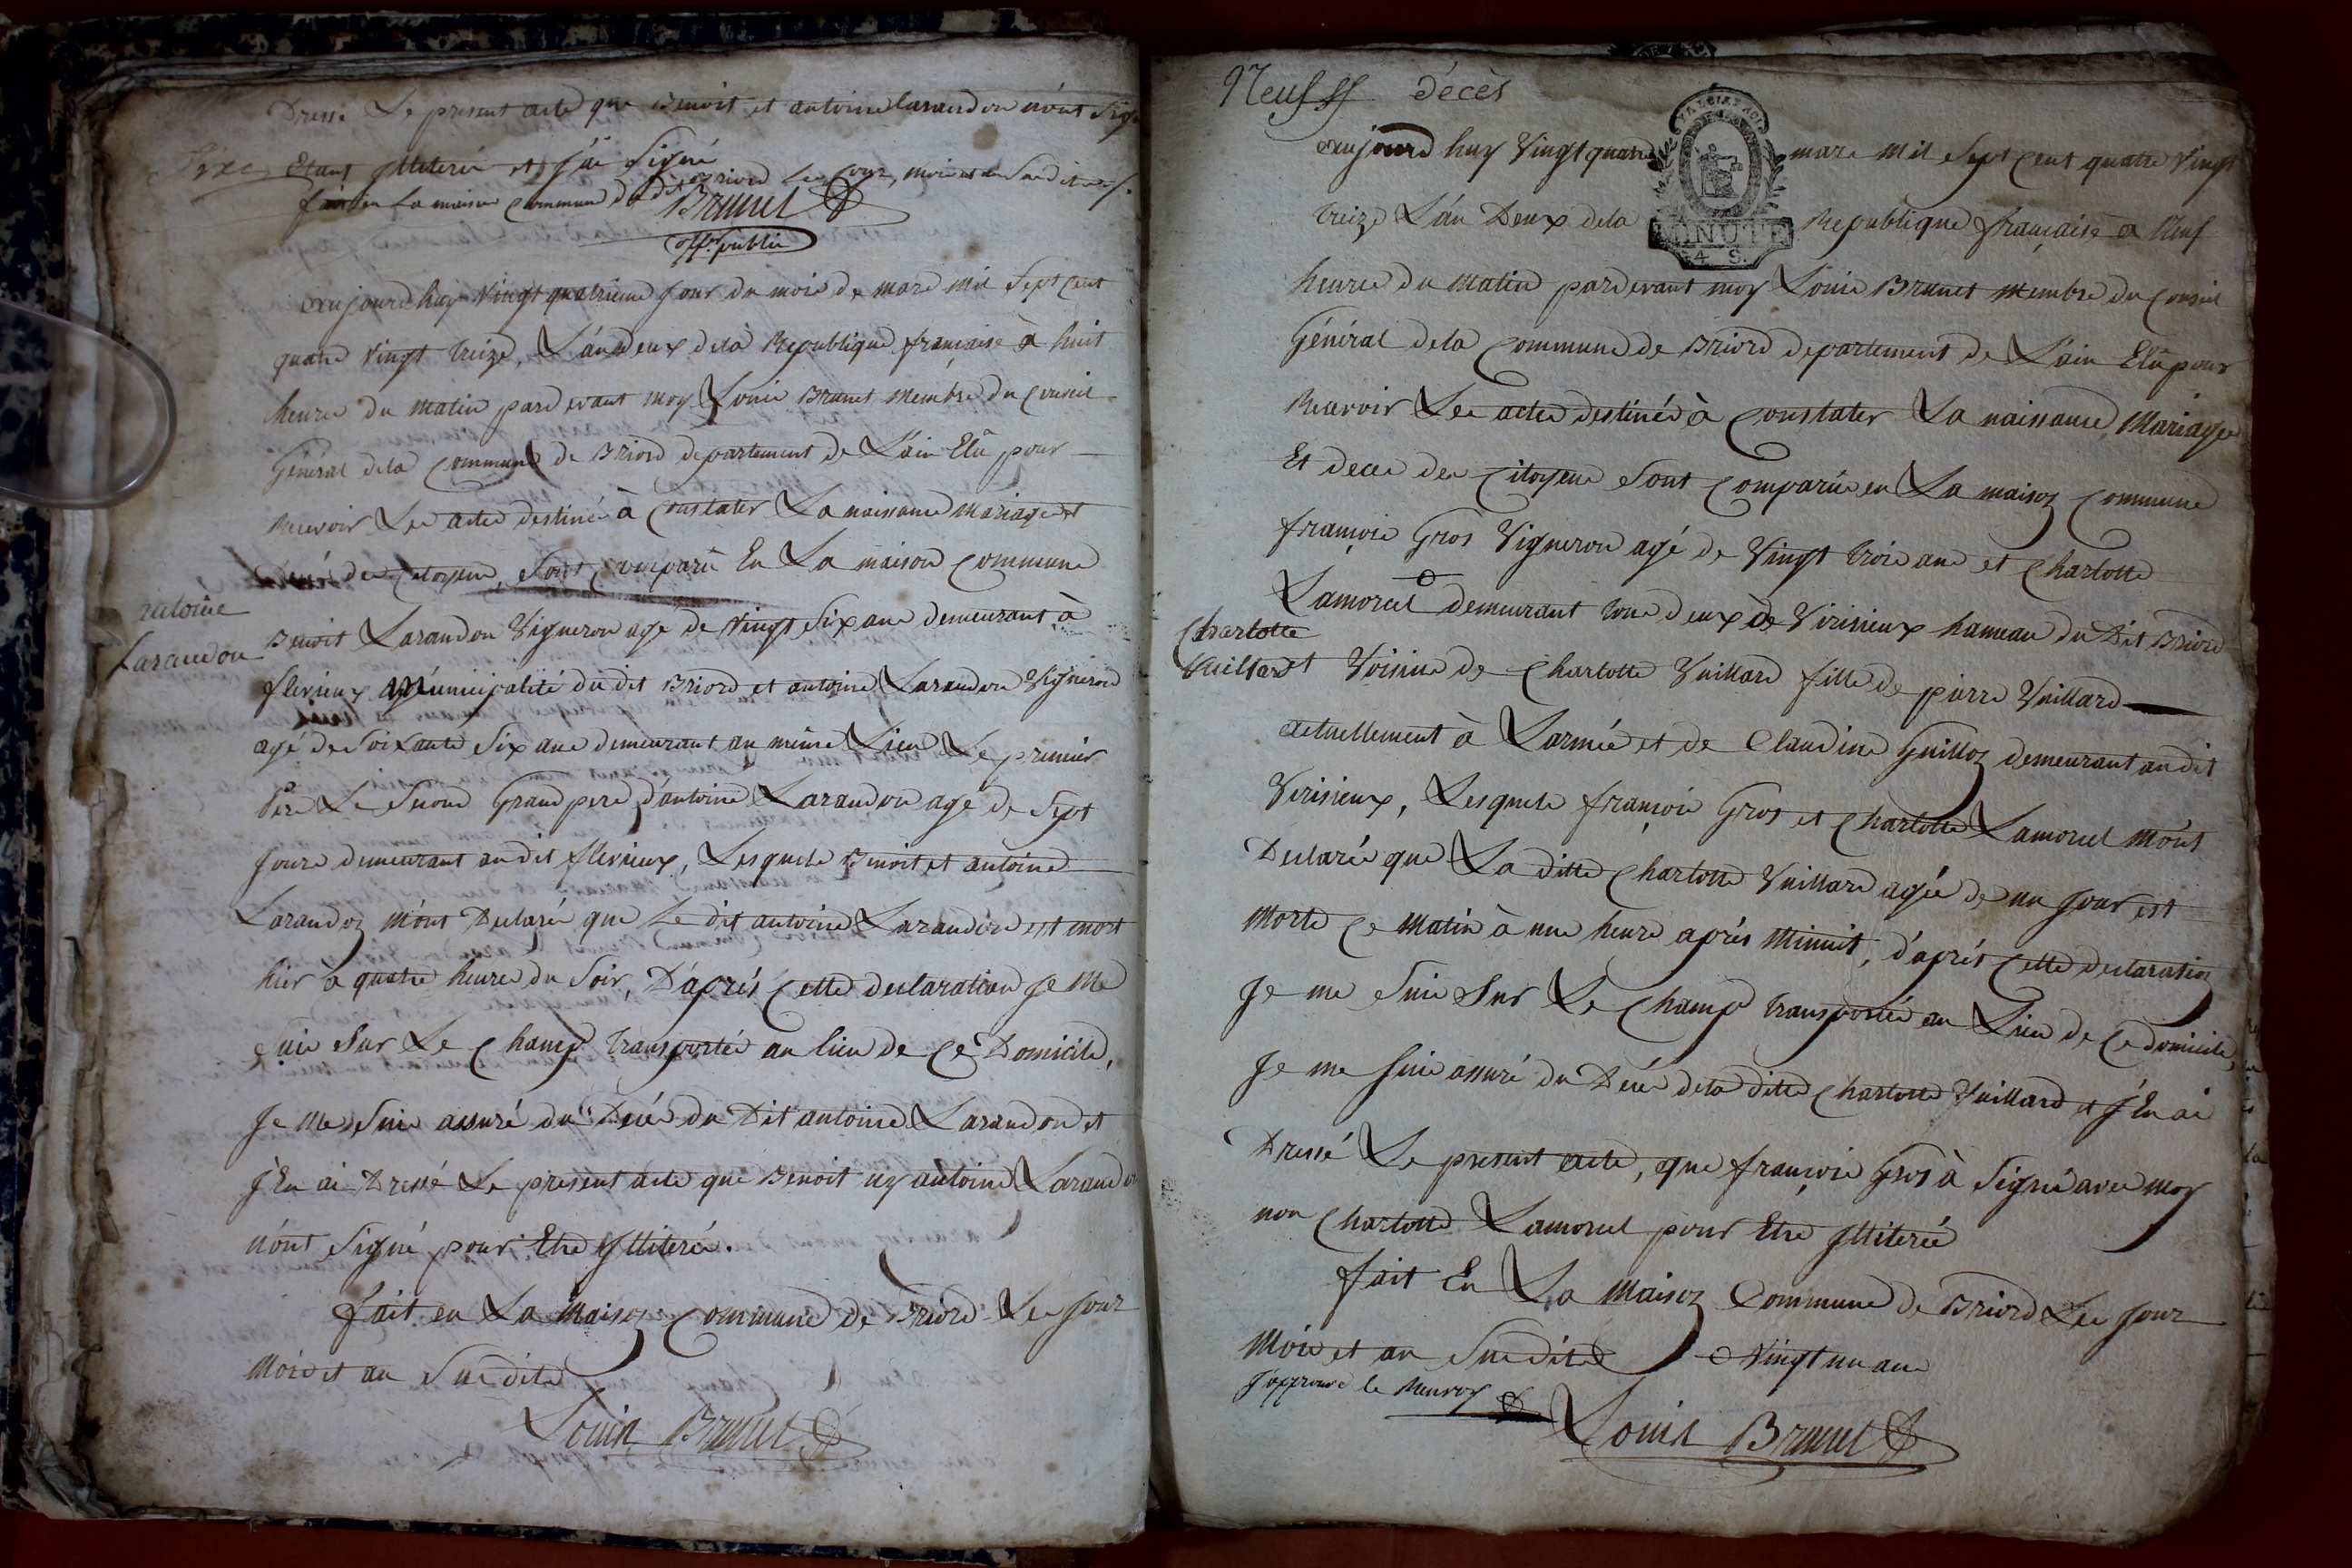 Dressé Le present acte que Benoit et antoine Laraudon n'ont sig
Etant Jlliteré et J'ai Signé
fait en La maison Commune du dit Briord Les Jour, mois et an Susdits
Brunet
offr. public
aujourd'huy Vingt quatrieme Jour du mois de mars mil Sept Cent
quatre Vingt treize, L'an deux dela Republique française à huit
heures du matin pardevant moy Louis Brunet membre du Conseil
Général dela Commune de Briord departement de L'ain Elû pour
Recevoir Les actes destinés à Constater La naissance mariage et
Decés des Citoyens, Sont Comparû En La maison Commune
antoine
Laraudon
Benoit Laraudon Vigneron agé de Vingt Six ans demeurant à
flevieux municipalité du dit Briord et antoine Laraudon Vigneron
agé de Soixante Six ans demeurant au même Lieu Le premier
Pere Le Second Grand pere d'antoine Laraudon agé de Sept
Jours demeurant au dit flevieux, Lesquels Benoit et antoine
Laraudon m'ont Declaré que Le dit antoine Laraudon est mort
hier à quatre heures du Soir, D'aprés Cette declaration Je me
Suis Sur Le Champ transporté au lieu de Ce Domicile,
Je me Suis assuré du Decés du Dit antoine Laraudon et
J'En ai Dressé Le present acte que Benoit ny antoine Laraudon
n'ont Signé pour Etre Jlliteré.
fait en La Maison Commune de Briord Les Jour
Mois et an Susdits
Louis Brunet
Neuf décès
aujourd'huy Vingt quatre mars mil Sept Cent quatre Vingt
treize L'an Deux dela Republique française à Neuf
MINUTE
4 S.
heures du Matin pardevant moy Louis Brunet membre du Conseil
Général dela Commune de Briord departement de L'ain Elû pour
Recevoir Les actes destinés à Constater La naissance, Mariage
Et deces des Citoyens Sont Comparus en La maison Commune
françois Gros Vigneron agé de Vingt trois ans et Charlotte
Lamorcel demeurant tous deux de Virisieux hameau du Dit Briord
Charlotte
Vuillard
et Voisins de Charlotte Vuillard fille de pierre Vuillard
actuellement à Larmée et de Claudine Guilloz demeurant audit
Virisieux, Lesquels françois Gros et Charlotte Lamorcel m'ont
Declarés que La ditte Charlotte Vuillard agée de un Jour est
Morte Ce Matin à une heure aprés Minuit, d'aprés Cette declaration
Je me Suis Sur Le Champ transporté au Lieu de Ce domicile,
Je me Suis assuré du Decés dela ditte Charlotte Vuillard et J'En ai
Dressé Le present acte, que françois Gros à Signé avec moy
non Charlotte Lamorcel pour Etre Jlliterée
fait En La Maison Commune de Briord Les Jour
Mois et an Susdits Vingt un ans
J'approuve le Renvoy
Louis Brunet